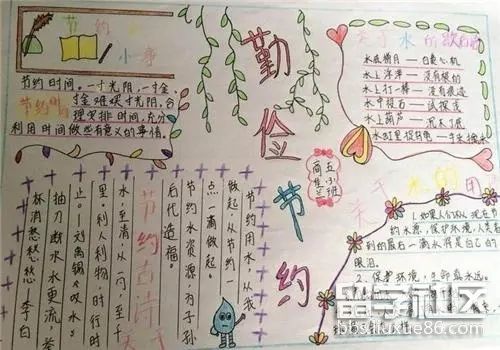 节约
小字
节约时间。一寸光阴一寸金,
寸金难买寸光阴,合
节约时
理安排时间,充分
利用时间做些有意义的事情。
勤俭节约
五小班
关于水的歇后语
水底捞月——白费心机
水上浮萍——没有根的
水上打一棒——没有痕迹
水中投石——试探深
水上葫芦——沉不下底
节约用水,从我
做起,从节约一
点一滴做起。
节约水资源,为子孙
后代造福。
节约古诗
水,至清从一勺,至千
里,利人利物时行时
止。刘禹锡《叹水》
抽刀断水水更流,举
杯消愁愁愁 李白
关于水的
1.如果人们从现在
约水源,保护环境,人类看
到的最后一滴水将是自己的
眼泪。
2、保护环境,
留学社区
bbs.liuxue86.com